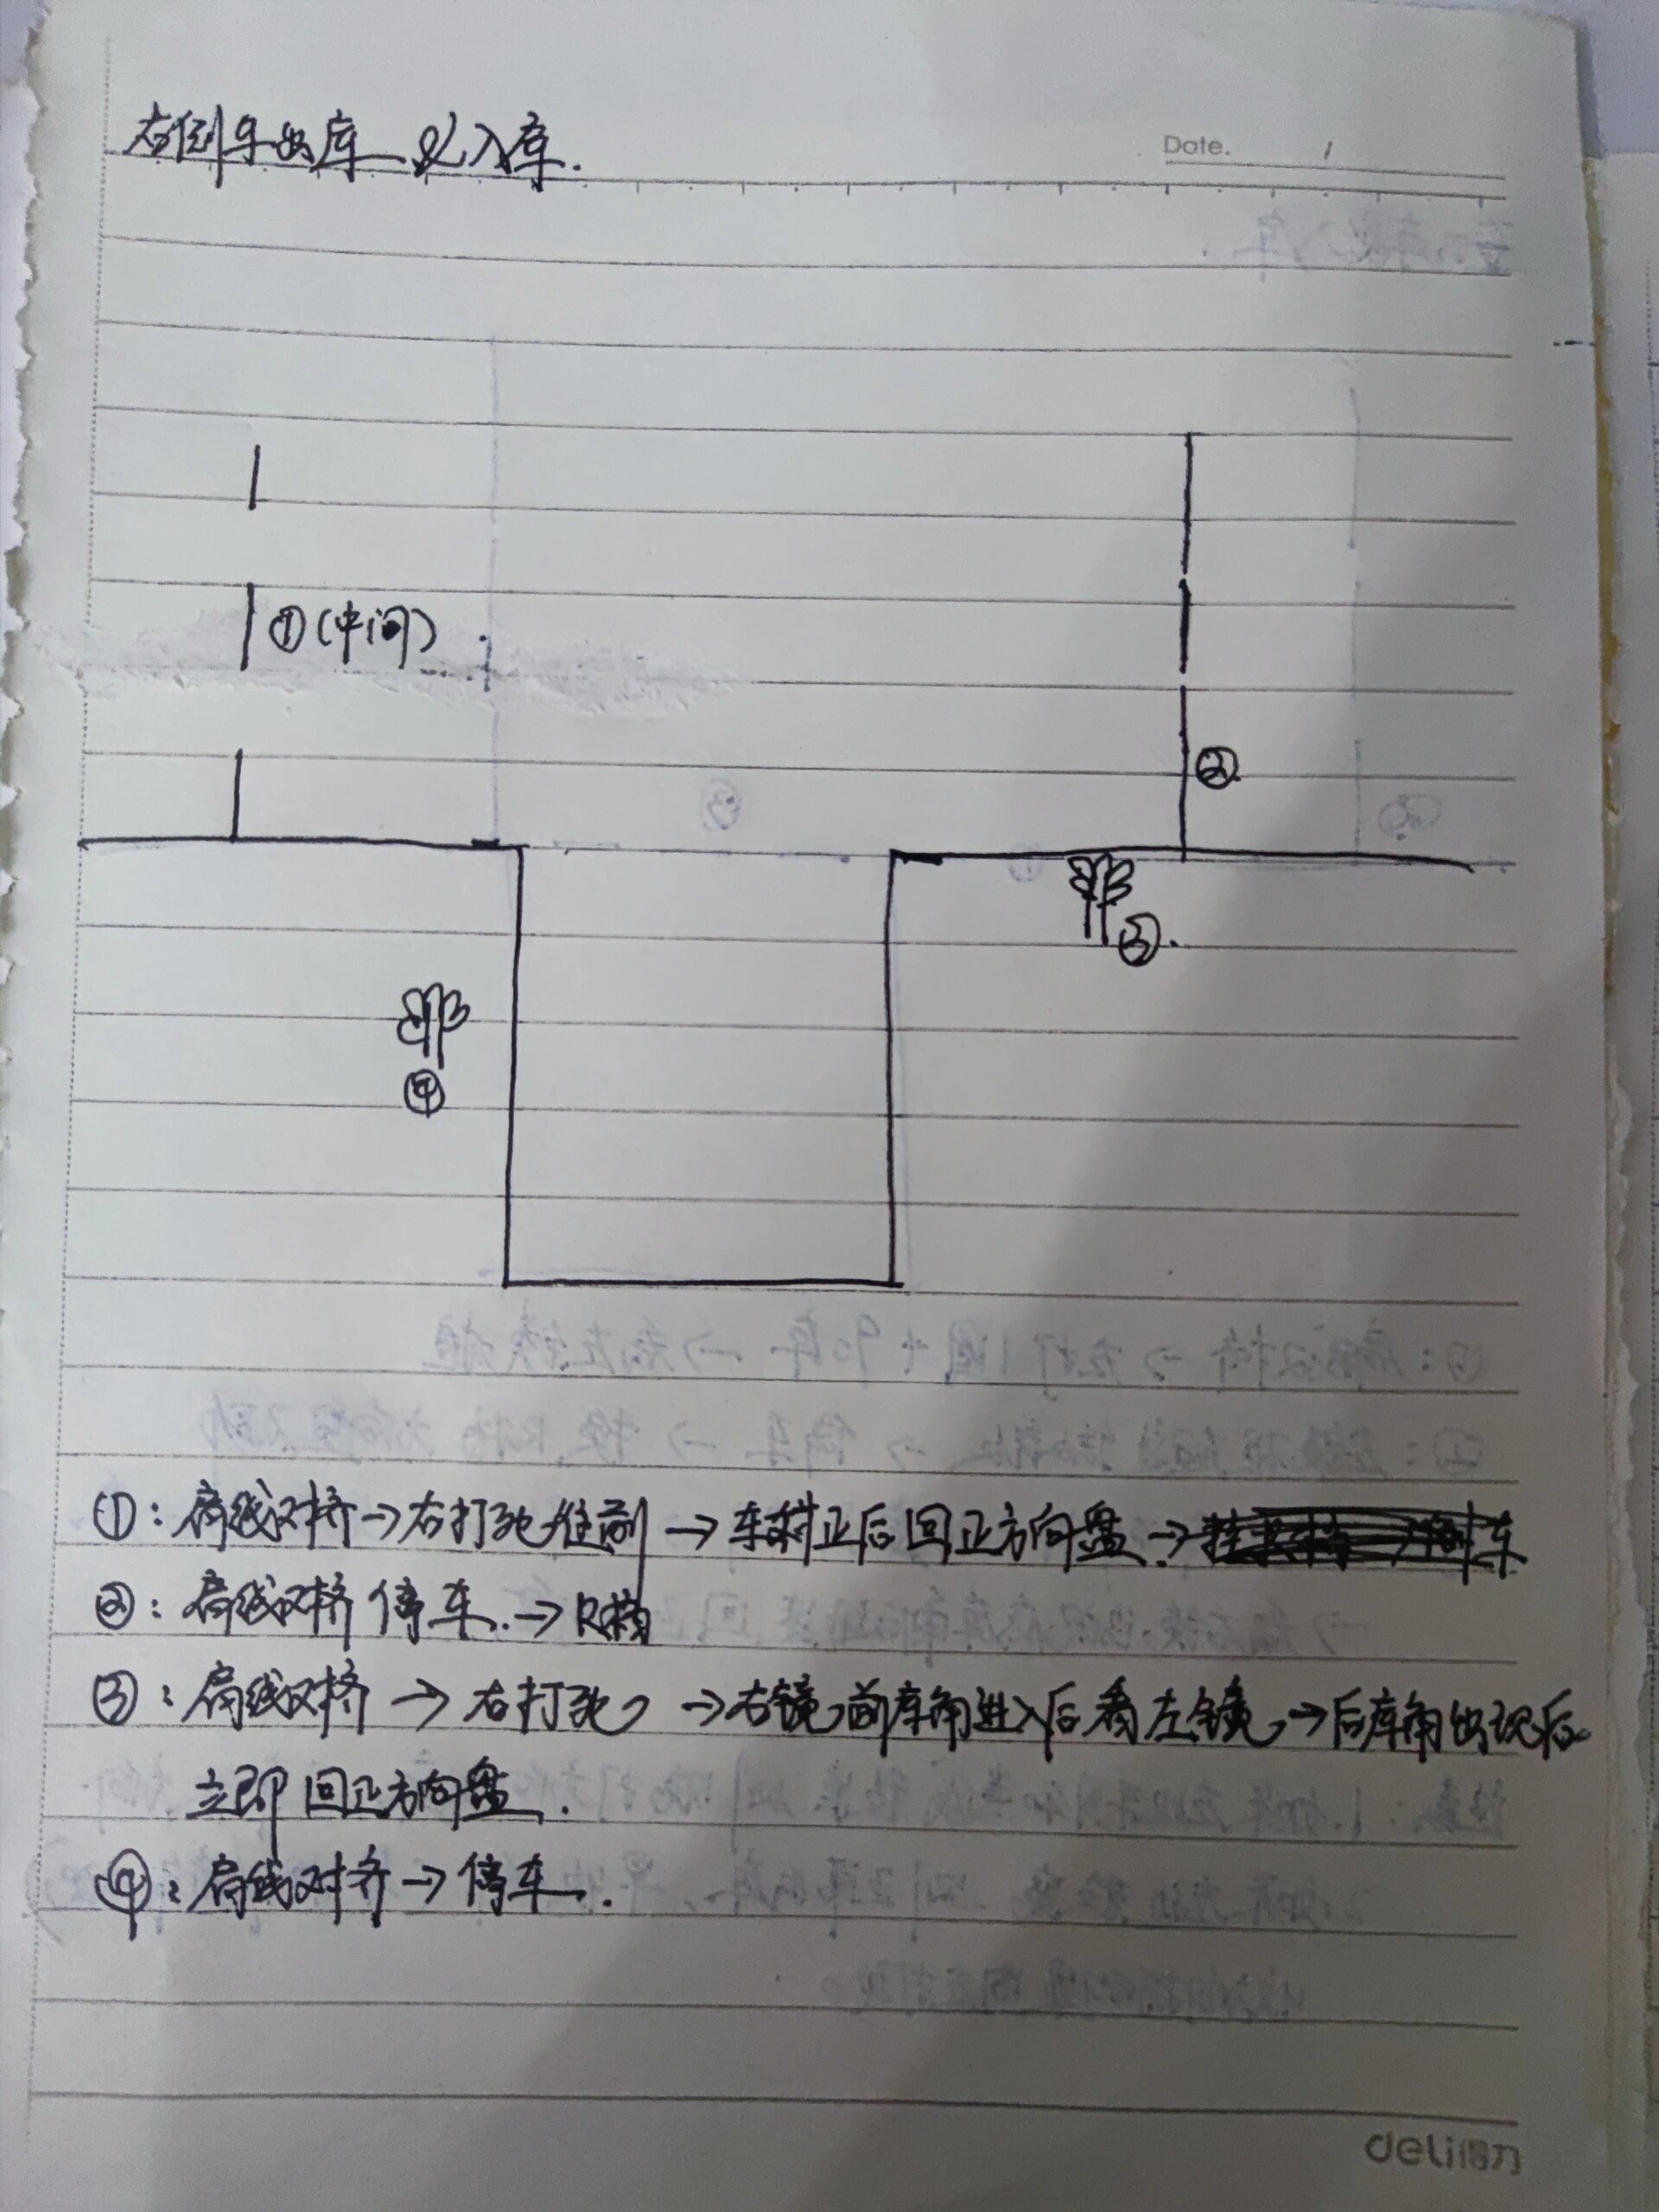 右倒车出库 及入库.
Date.
①(中间)
②
③.
④
①：肩线对挤→右打死往前→车斜正后回正方向盘→
②：肩线对挤 停车.→R档
③：肩线对挤→右打死→右镜前库角进入后看左镜→后库角出现后
立即回正方向盘.
④：肩线对齐→停车.
deli得力